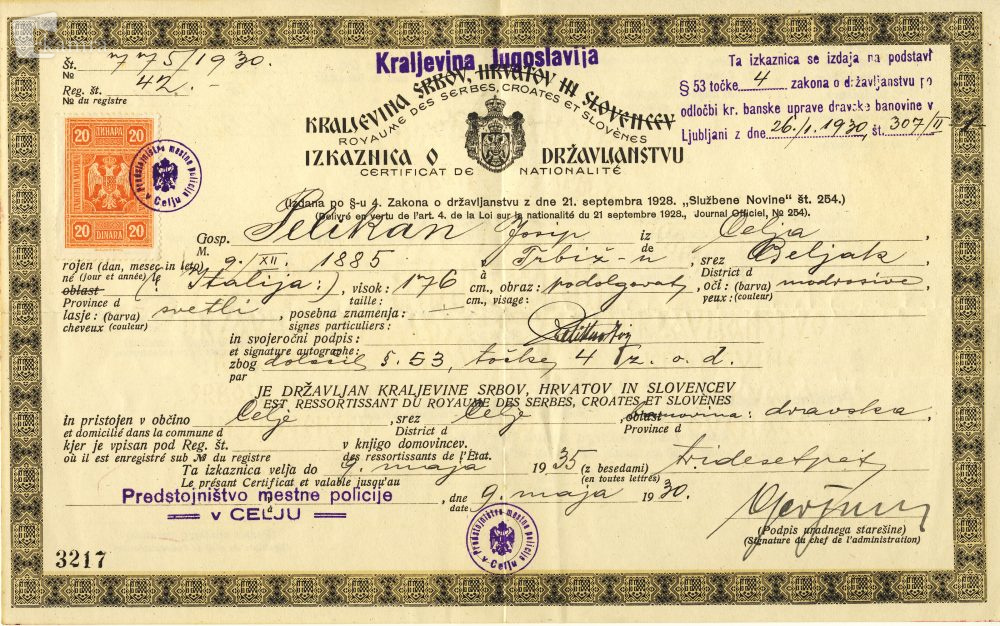 Št. 775/1930.
№
Reg. št. 42.-
№ du registre
Kraljevina Jugoslavija
KRALJEVINA SRBOV, HRVATOV IN SLOVENCEV
ROYAUME DES SERBES, CROATES ET SLOVÈNES
IZKAZNICA O DRŽAVLJANSTVU
CERTIFICAT DE NATIONALITÉ
Ta izkaznica se izdaja na podstavi
§ 53 točke 4 zakona o državljanstvu po
odločbi kr. banske uprave dravske banovine v
Ljubljani z dne 26./1. 1930, št. 307/II-1
20 ДИНАРА 20
20 DINARA 20
Predstojništvo mestne policije v Celju
(Izdana po §-u 4. Zakona o državljanstvu z dne 21. septembra 1928. „Službene Novine" št. 254.)
(Delivré en vertu de l'art. 4. de la Loi sur la nationalité du 21 septembre 1928., Journal Officiel, № 254).
Gosp. Pelikan Josip iz Celja,
M. de
rojen (dan, mesec in leto) 9./XII. 1885 à Trbiž-u srez Beljak
né (jour et année) le District d
oblast (Italija:), visok: 176 cm., obraz: podolgovat, oči: (barva) modrosive
Province d taille: cm., visage: yeux: (couleur)
lasje: (barva) svetli, posebna znamenja: -
cheveux (couleur) signes particuliers:
in svojeročni podpis:
et signature autographe:
zbog določil §. 53, točke 4 z. o. d.
par
JE DRŽAVLJAN KRALJEVINE SRBOV, HRVATOV IN SLOVENCEV
EST RESSORTISSANT DU ROYAUME DES SERBES, CROATES ET SLOVÈNES
in pristojen v občino Celje, srez Celje, oblast banovina: dravska,
et domicilié dans la commune d District d Province d
kjer je vpisan pod Reg. Št. v knjigo domovincev.
où il est enregistré sub № du registre des ressortissants de l'État.
Ta izkaznica velja do 9. maja 1935 (z besedami) tridesetpet
Le présent Certificat est valable jusqu'au (en toutes lettres)
Predstojništvo mestne policije, dne 9. maja 1930.
à date
v CELJU
Predstojništvo mestne policije v Celju
(Podpis uradnega starešine)
(Signature du chef de l'administration)
3217